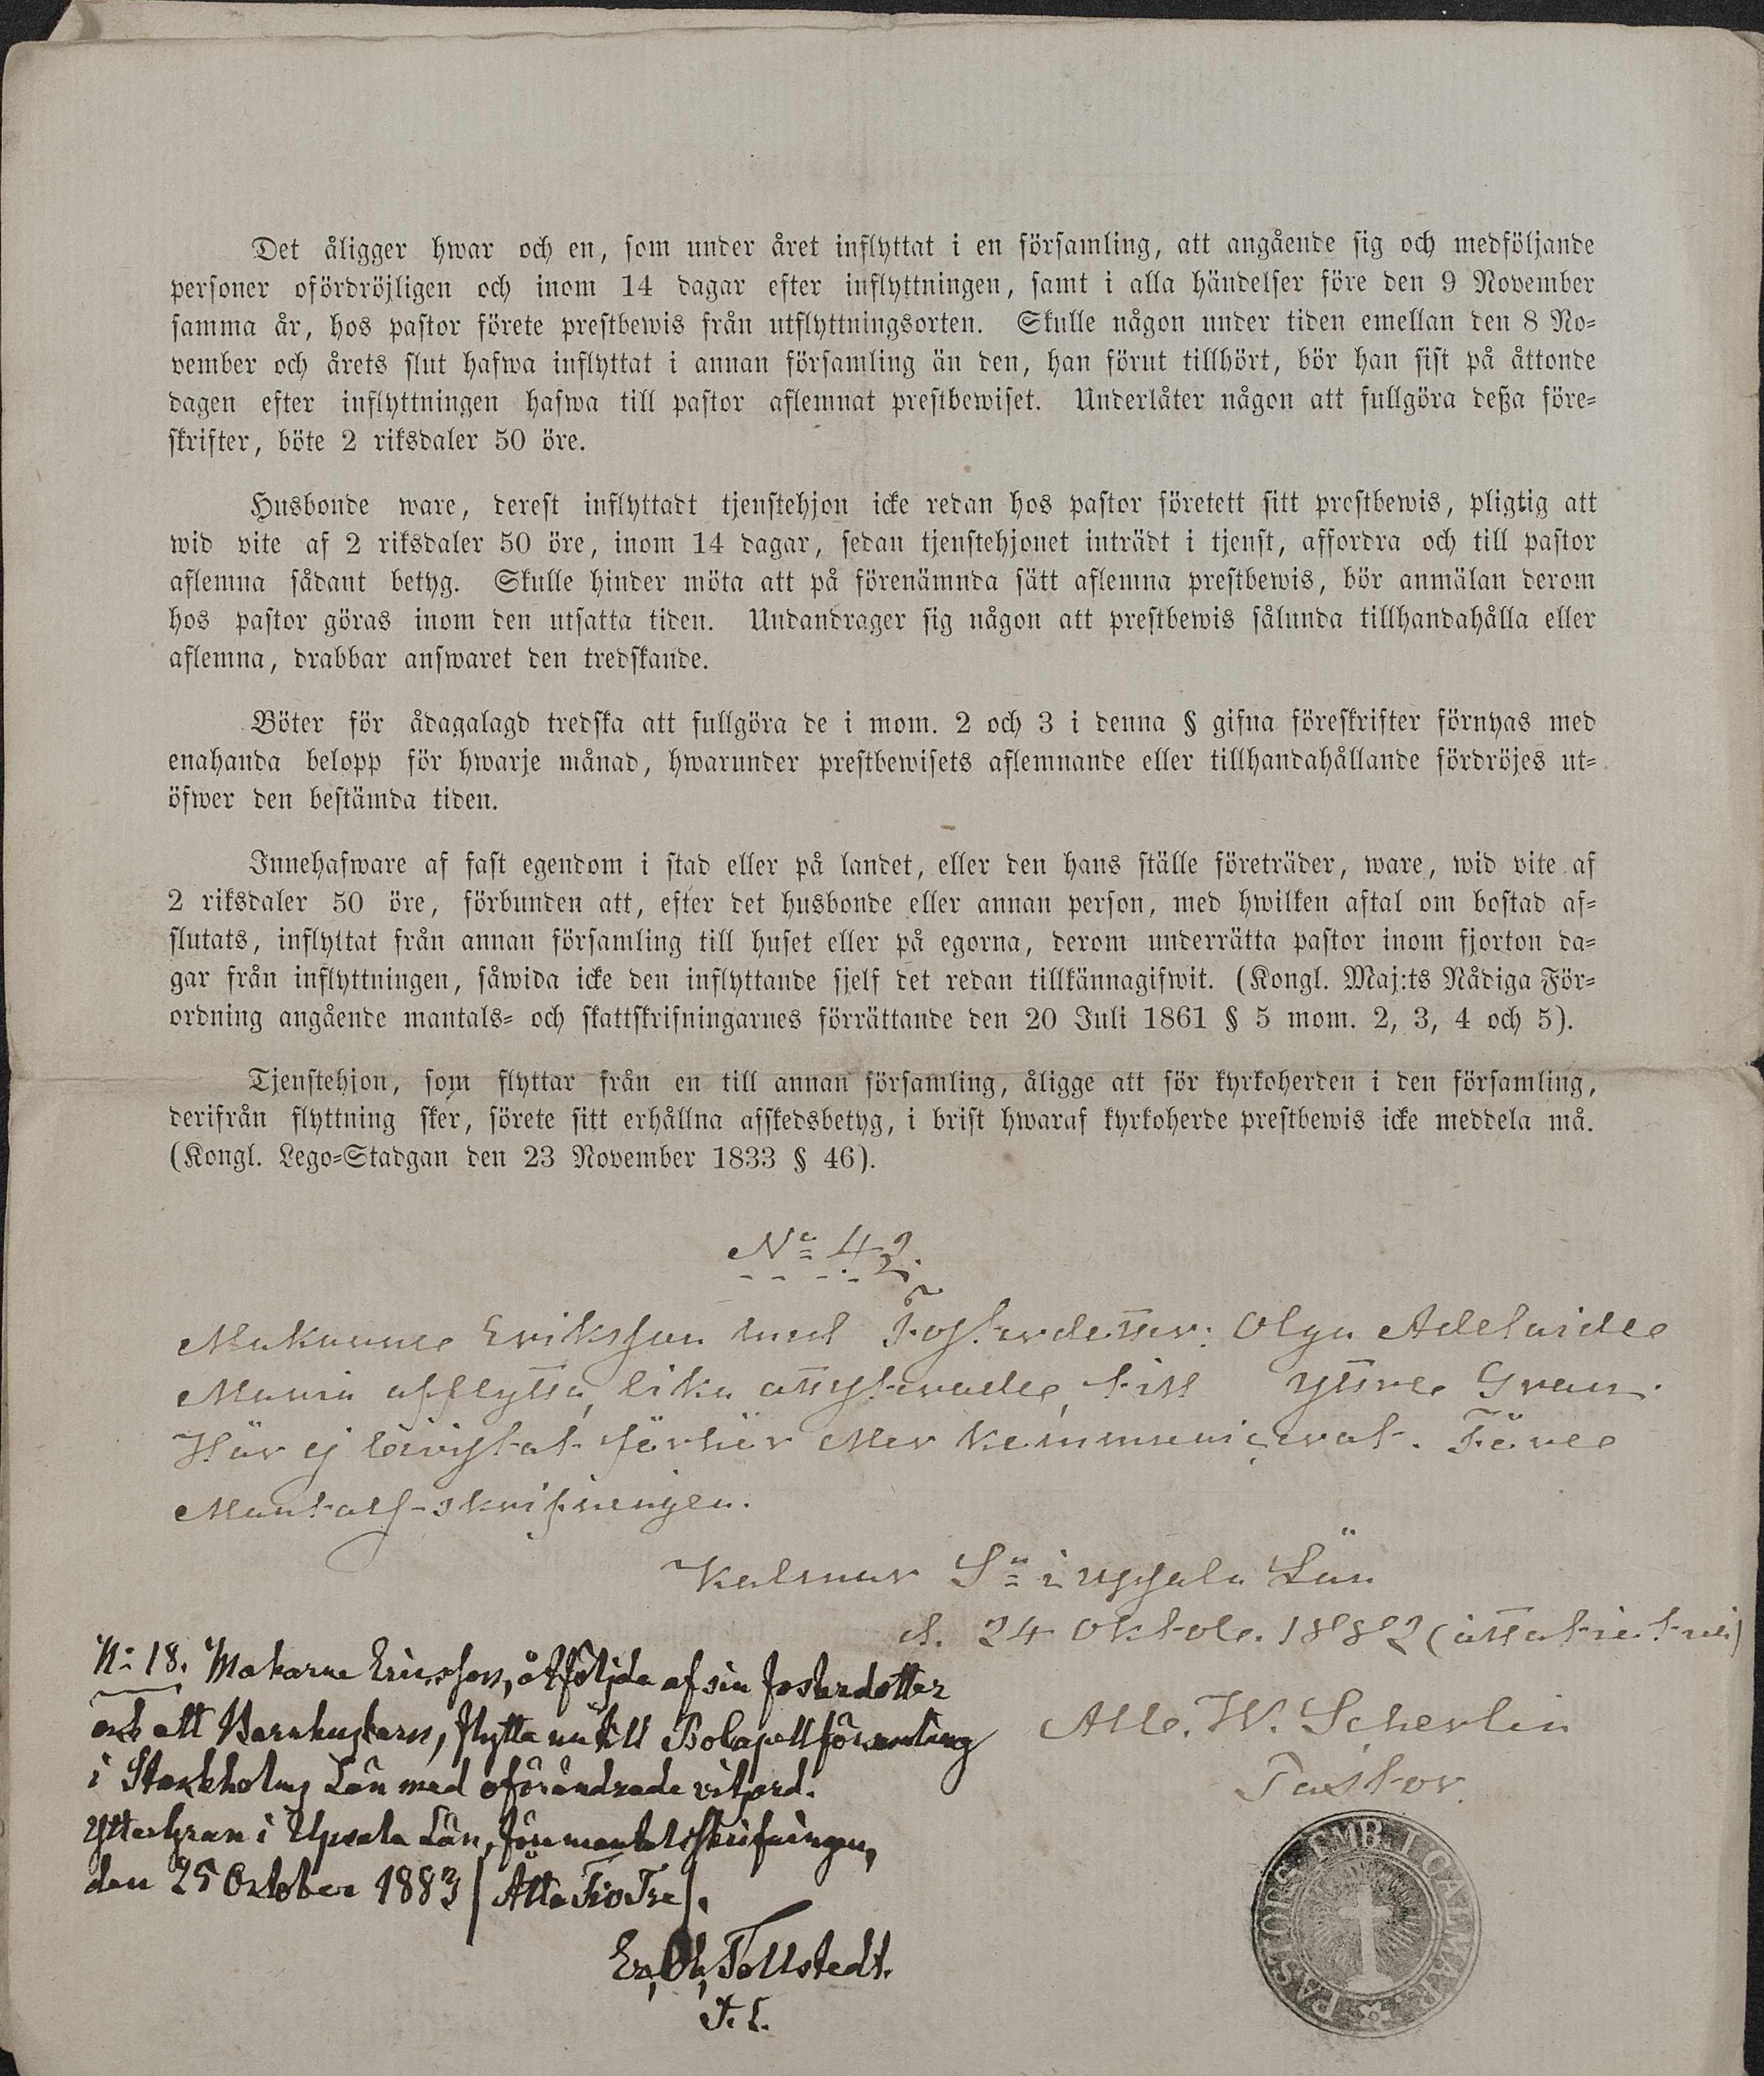 Det åligger hwar och en, som under året inflyttat i en församling, att angående sig och medföljande
personer ofördröjligen och inom 14 dagar efter inflyttningen, samt i alla händelser före den 9 November
samma år, hos pastor förete prestbewis från utflyttningsorten. Skulle någon under tiden emellan den 8 No-
vember och årets slut hafwa inflyttat i annan församling än den, han förut tillhört, bör han sist på åttonde
dagen efter inflyttningen hafwa till pastor aflemnat prestbewiset. Underlåter någon att fullgöra deßa före-
skrifter, böte 2 riksdaler 50 öre.
Husbonde ware, derest inflyttadt tjenstehjon icke redan hos pastor företett sitt prestbewis, pligtig att
wid vite af 2 riksdaler 50 öre, inom 14 dagar, sedan tjenstehjonet inträdt i tjenst, affordra och till pastor
aflemna sådant betyg. Skulle hinder möta att på förenämnda sätt aflemna prestbewis, bör anmälan derom
hos pastor göras inom den utsatta tiden. Undandrager sig någon att prestbewis sålunda tillhandahålla eller
aflemna, drabbar answaret den tredskande.
Böter för ådagalagd tredska att fullgöra de i mom. 2 och 3 i denna § gifna föreskrifter förnyas med
enahanda belopp för hwarje månad, hwarunder prestbewisets aflemnande eller tillhandahållande fördröjes ut-
öfwer den bestämda tiden.
Innehafware af fast egendom i stad eller på landet, eller den hans ställe företräder, ware, wid vite af
2 riksdaler 50 öre, förbunden att, efter det husbonde eller annan person, med hwilken aftal om bostad af-
slutats, inflyttat från annan församling till huset eller på egorna, derom underrätta pastor inom fjorton da-
gar från inflyttningen, såwida icke den inflyttande sjelf det redan tillkännagifwit. (Kongl. Maj:ts Nådiga För-
ordning angående mantals- och skattskrifningarnes förrättande den 20 Juli 1861 § 5 mom. 2, 3, 4 och 5).
Tjenstehjon, som flyttar från en till annan församling, åligge att för kyrkoherden i den församling,
derifrån flyttning sker, förete sitt erhållna afskedsbetyg, i brist hwaraf kyrkoherde prestbewis icke meddela må.
(Kongl. Lego-Stadgan den 23 November 1833 § 46).
No 42.
Makarne Eriksson med Fosterdotter: Olga Adelaide
Maria afflytta, lika attesterade, till Yttre Gran.
Här ej bevistat förhör eller kommunicerat. Före
Mantals-skrifningen.
Kalmar Sn i Upsala Län
d. 24 Oktob. 1882 (åttatiotvå)
Alb. W. Scherlin
Pastor.
N: 18. Makarne Ericsson, åtföljda af sin fosterdotter
och ett Barnhusbarn, flytta nu till Bokapellförsamling
i Stockholms Län med oförändrade vitsord.
Yttergran i Upsala Län, före mantalsskrifningen,
den 25 October 1883 (Åtta Tio Tre).
Er. Ol. Tollstedt.
PASTORS EMB. I CALMAR.